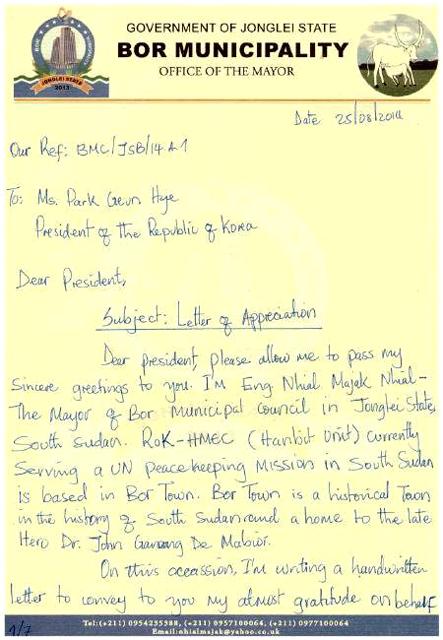 GOVERNMENT OF JONGLEI STATE
BOR MUNICIPALITY
OFFICE OF THE MAYOR
BOR MUNICIPALITY
JONGLEI STATE
2013
Date 25/08/2014
Our Ref: BMC/JSB/14 A1
To: Ms. Park Geun Hye
President of the Republic of Korea
Dear President,
Subject: Letter of Appreciation
Dear president, please allow me to pass my
Sincere greetings to you. I'm Eng Nhial Majak Nhial -
The Mayor of Bor Municipal Council in Jonglei State,
South Sudan. ROK-HMEC (Hanbit Unit) currently
Serving a UN Peacekeeping Mission in South Sudan
is based in Bor Town. Bor Town is a historical Town
in the history of South Sudan and a home to the late
Hero Dr. John Garang De Mabior.
On this occassion, I'm writing a handwritten
letter to convey to you my almost gratitude on behalf
1/7
Tel:(+211) 0954255388, (+211) 0957100064, (+211) 0977100064
Email:nhialmajak@yahoo.co.uk